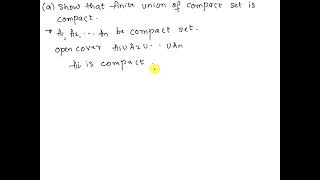 (a) Show that finite union of compact set is
compact.
→ A1, A2, ... An be compact set.
open cover A1 ∪ A2 ∪ ... ∪ An
Ai is compact